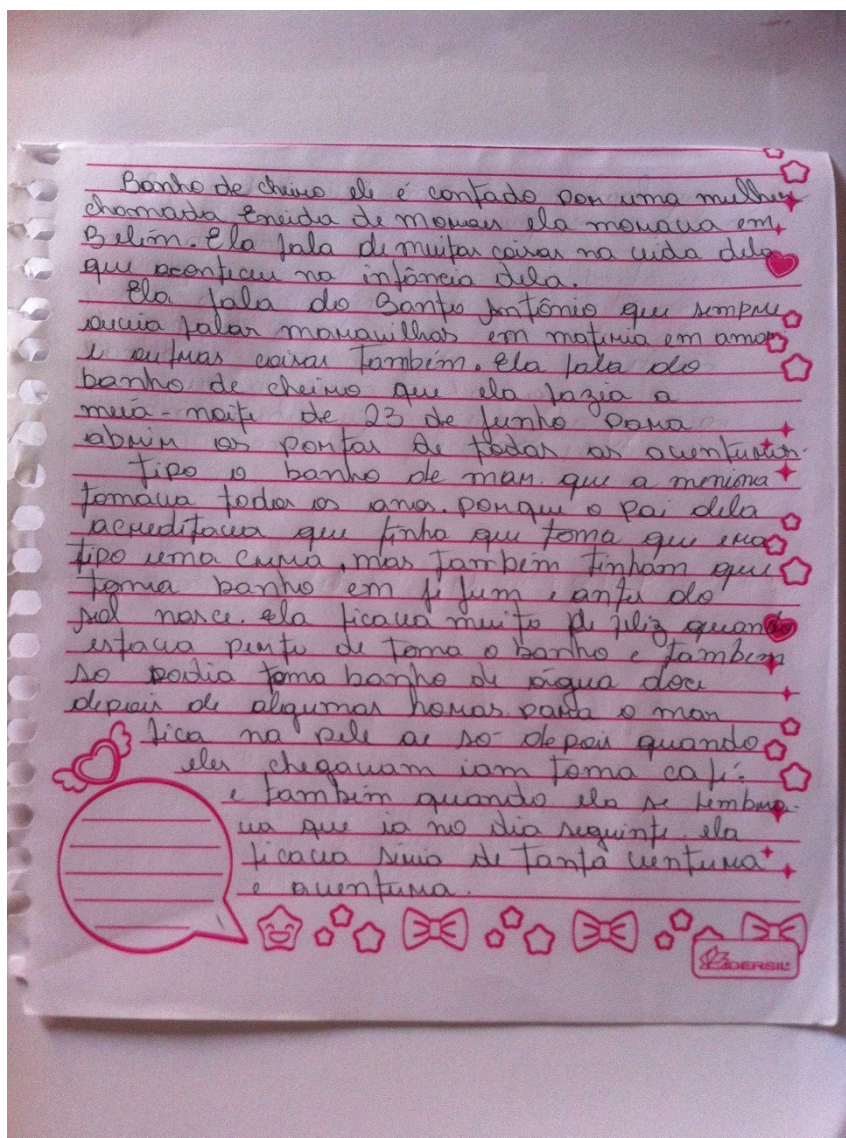 Banho de cheiro ele é contado por uma mulher
chamada Eneida de Morais ela morava em
Belém. Ela fala de muitas coisas na vida dela
que aconticeu na infância dela.
Ela fala do Santo Antônio que sempre
ouvia falar maravilhas em matiria em amor
e outras coisas também. Ela fala do
banho de cheiro que ela fazia a
meia-noite de 23 de junho para
abrir as portas de todas as aventuras.
Tipo o banho de mar que a menina
tomava todos os anos. porque o pai dela
acreditava que tinha que toma que era
tipo uma cura, mas também tinham que
toma banho em jejum e antes do
sol nasce. ela ficava muito feliz quando
estava perto de toma o banho e também
so podia toma banho de água doce
depois de algumas horas. para o mar
fica na pele ai so depois quando
eles chegavam iam toma café.
e também quando ela se lembra-
va que ia no dia seguinte ela
ficava séria de tanta ventura
e aventura.
DERSIL